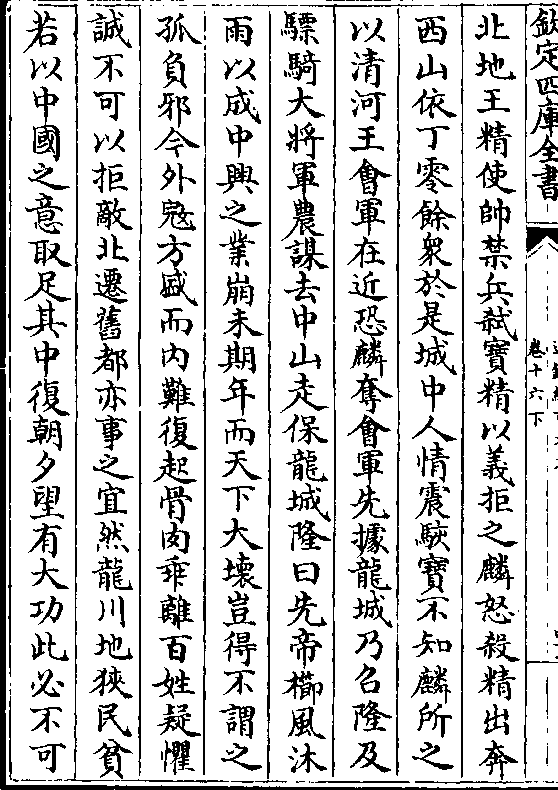 欽定四庫全書
卷十六下
北地王精使帥禁兵弑寶精以義拒之麟怒殺精出奔
西山依丁零餘衆於是城中人情震駭寶不知麟所之
以清河王會軍在近恐麟奪會軍先據龍城乃召隆及
驃騎大將軍農謀去中山走保龍城隆曰先帝櫛風沐
雨以成中興之業崩未期年而天下大壞豈得不謂之
孤負邪今外寇方盛而内難復起骨肉乖離百姓疑懼
誠不可以拒敵北遷舊都亦事之宜然龍川地狹民貧
若以中國之意取足其中復朝夕望有大功此必不可